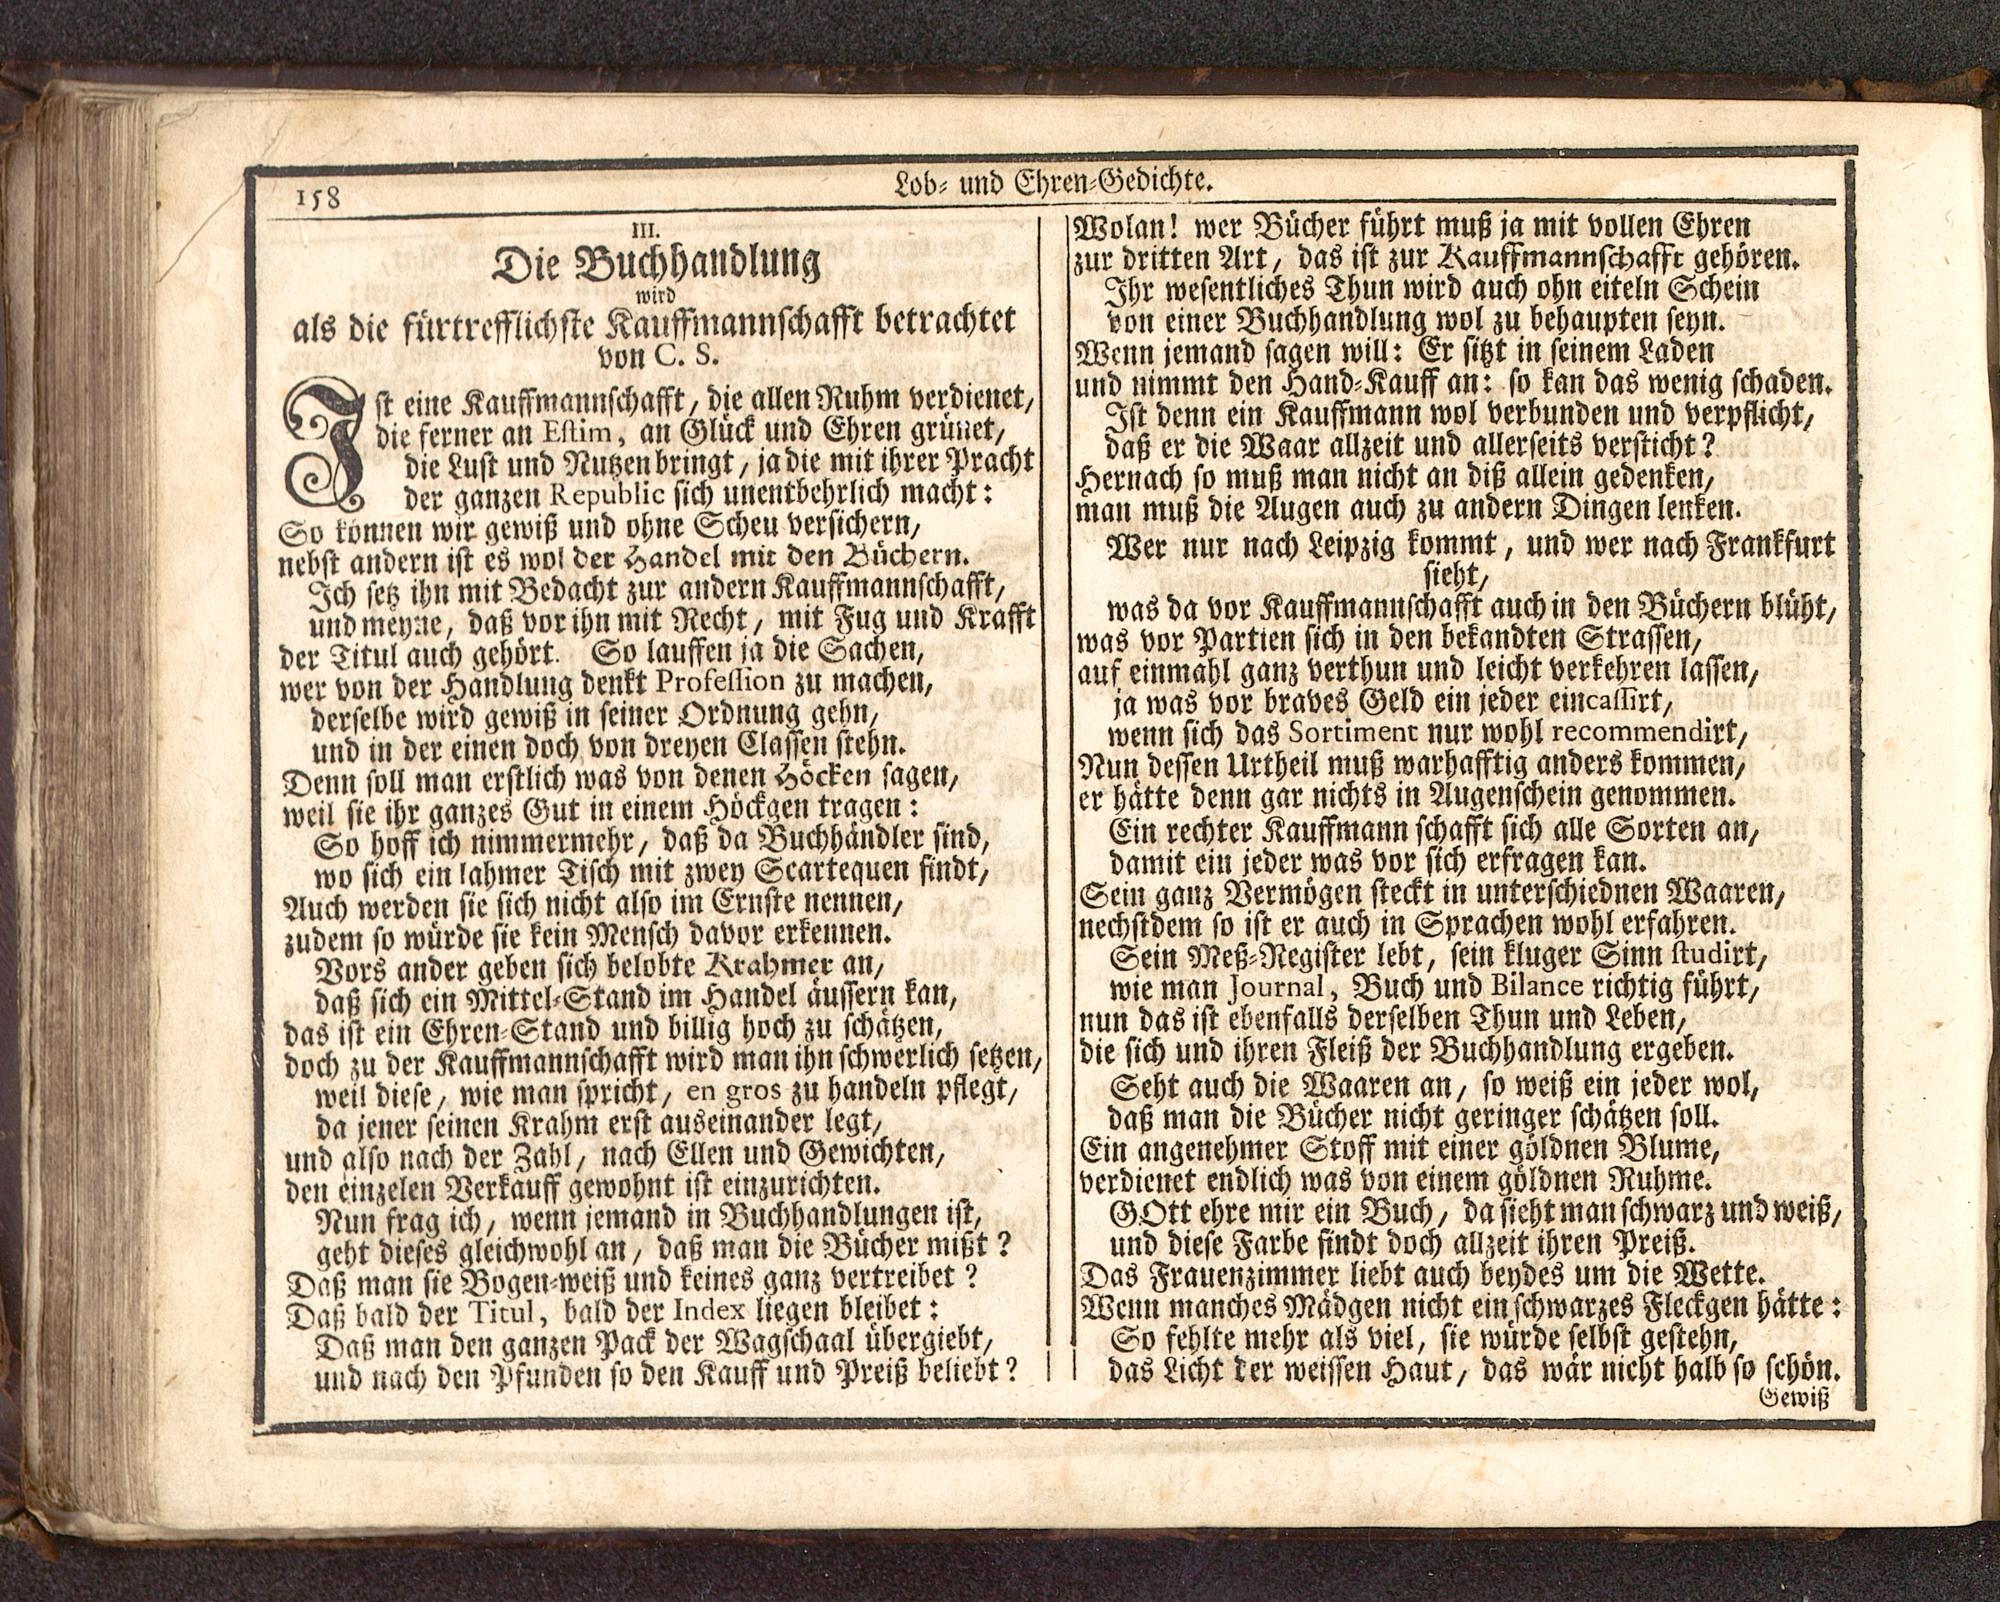 158
Lob- und Ehren-Gedichte.
III.
Die Buchhandlung
wird
als die fürtrefflichste Kauffmannschafft betrachtet
von C. S.
Ist eine Kauffmannschafft, die allen Ruhm verdienet,
die ferner an Estim, an Glück und Ehren grünet,
die Lust und Nutzen bringt, ja die mit ihrer Pracht
der ganzen Republic sich unentbehrlich macht:
So können wir gewiß und ohne Scheu versichern,
nebst andern ist es wol der Handel mit den Büchern.
Ich setz ihn mit Bedacht zur andern Kauffmannschafft,
und meyne, daß vor ihn mit Recht, mit Fug und Krafft
der Titul auch gehört. So lauffen ja die Sachen,
wer von der Handlung denkt Profession zu machen,
derselbe wird gewiß in seiner Ordnung gehn,
und in der einen doch von dreyen Classen stehn.
Denn soll man erstlich was von denen Höcken sagen,
weil sie ihr ganzes Gut in einem Höckgen tragen:
So hoff ich nimmermehr, daß da Buchhändler sind,
wo sich ein lahmer Tisch mit zwey Scartequen findt,
Auch werden sie sich nicht also im Ernste nennen,
zudem so würde sie kein Mensch davor erkennen.
Vors ander geben sich belobte Krahmer an,
daß sich ein Mittel-Stand im Handel äussern kan,
das ist ein Ehren-Stand und billig hoch zu schätzen,
doch zu der Kauffmannschafft wird man ihn schwerlich setzen,
weil diese, wie man spricht, en gros zu handeln pflegt,
da jener seinen Krahm erst auseinander legt,
und also nach der Zahl, nach Ellen und Gewichten,
den einzelen Verkauff gewohnt ist einzurichten.
Nun frag ich, wenn jemand in Buchhandlungen ist,
geht dieses gleichwohl an, daß man die Bücher mißt?
Daß man sie Bogen-weiß und keines ganz vertreibet?
Daß bald der Titul, bald der Index liegen bleibet:
Daß man den ganzen Pack der Wagschaal übergiebt,
und nach den Pfunden so den Kauff und Preiß beliebt?
Wolan! wer Bücher führt muß ja mit vollen Ehren
zur dritten Art, das ist zur Kauffmannschafft gehören.
Ihr wesentliches Thun wird auch ohn eiteln Schein
von einer Buchhandlung wol zu behaupten seyn.
Wenn jemand sagen will: Er sitzt in seinem Laden
und nimmt den Hand-Kauff an: so kan das wenig schaden.
Ist denn ein Kauffmann wol verbunden und verpflicht,
daß er die Waar allzeit und allerseits versticht?
Hernach so muß man nicht an diß allein gedenken,
man muß die Augen auch zu andern Dingen lenken.
Wer nur nach Leipzig kommt, und wer nach Frankfurt
sieht,
was da vor Kauffmannschafft auch in den Büchern blüht,
was vor Partien sich in den bekandten Strassen,
auf einmahl ganz verthun und leicht verkehren lassen,
ja was vor braves Geld ein jeder eincassirt,
wenn sich das Sortiment nur wohl recommendirt,
Nun dessen Urtheil muß warhafftig anders kommen,
er hätte denn gar nichts in Augenschein genommen.
Ein rechter Kauffmann schafft sich alle Sorten an,
damit ein jeder was vor sich erfragen kan.
Sein ganz Vermögen steckt in unterschiednen Waaren,
nechstdem so ist er auch in Sprachen wohl erfahren.
Sein Meß-Register lebt, sein kluger Sinn studirt,
wie man Journal, Buch und Bilance richtig führt,
nun das ist ebenfalls derselben Thun und Leben,
die sich und ihren Fleiß der Buchhandlung ergeben.
Seht auch die Waaren an, so weiß ein jeder wol,
daß man die Bücher nicht geringer schätzen soll.
Ein angenehmer Stoff mit einer göldnen Blume,
verdienet endlich was von einem göldnen Ruhme.
GOtt ehre mir ein Buch, da sieht man schwarz und weiß,
und diese Farbe findt doch allzeit ihren Preiß.
Das Frauenzimmer liebt auch beydes um die Wette.
Wenn manches Mädgen nicht ein schwarzes Fleckgen hätte:
So fehlte mehr als viel, sie würde selbst gestehn,
das Licht der weissen Haut, das wär nicht halb so schön.
Gewiß